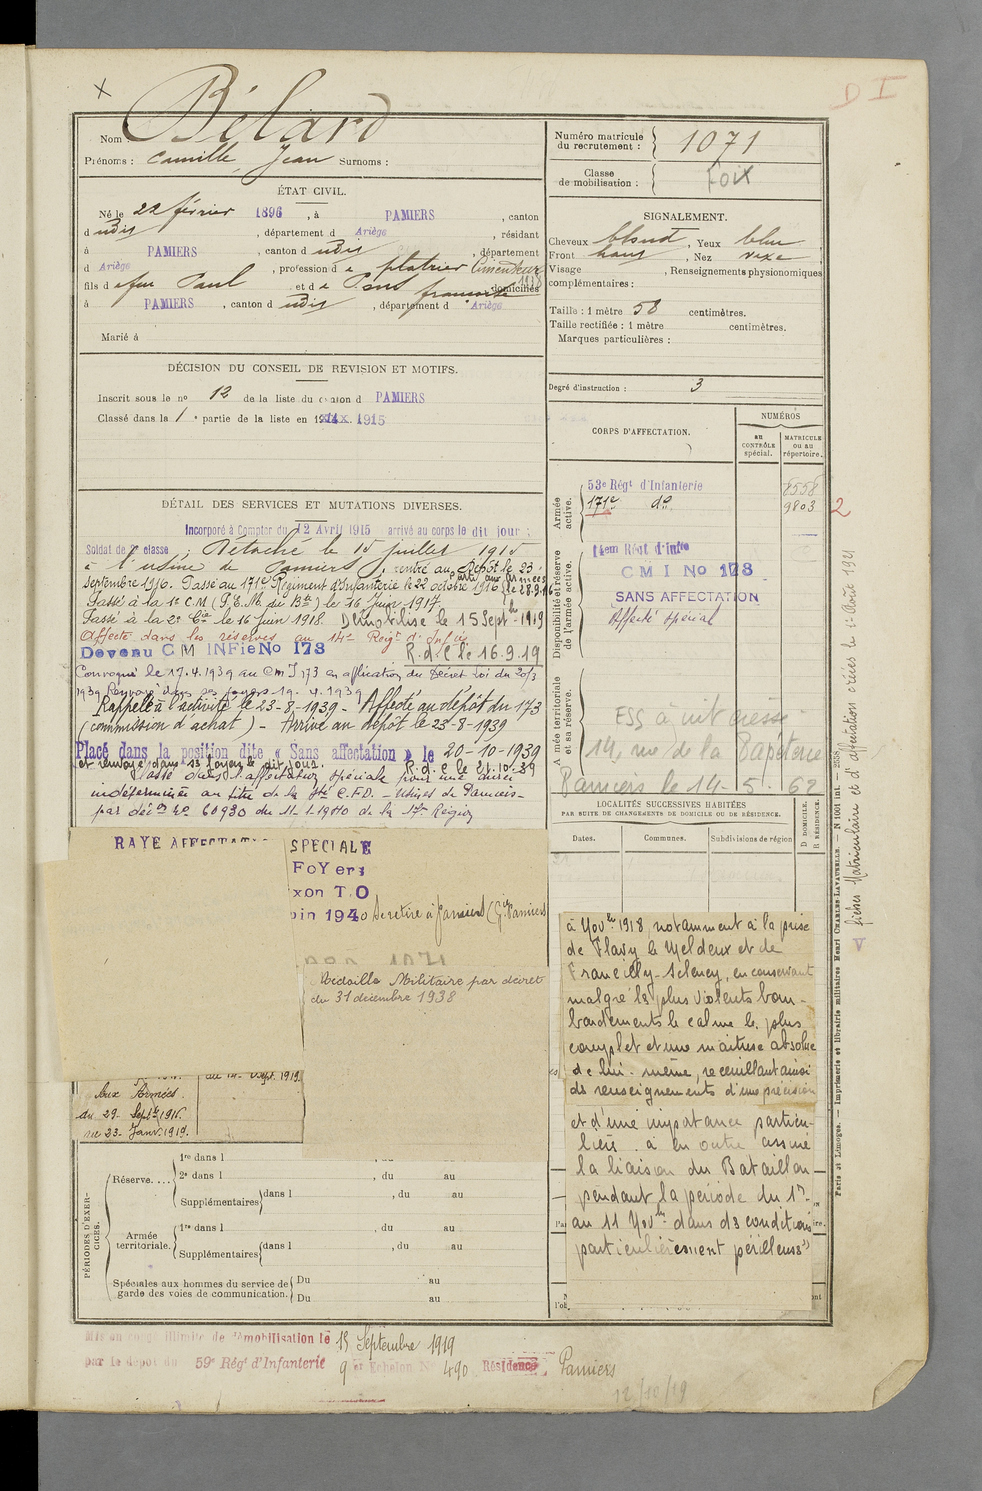 D I
Nom Bélard
Prénoms : Camille, Jean Surnoms :
ÉTAT CIVIL.
Né le 22 février 1896, à PAMIERS, canton
d udis, département d Ariège, résidant
à PAMIERS, canton d udis, département
d Ariège, profession de plâtrier Cimenteur
fils de feu Paul et de Pons françoise domiciliés
à PAMIERS, canton d udis, département d Ariège
Marié à
DÉCISION DU CONSEIL DE REVISION ET MOTIFS.
Inscrit sous le nº 12 de la liste du canton d PAMIERS
Classé dans la 1 e partie de la liste en 1915
DÉTAIL DES SERVICES ET MUTATIONS DIVERSES.
Incorporé à Compter du 12 Avril 1915 arrivé au corps le dit jour ;
Soldat de 2e classe ; Détaché le 15 juillet 1915
à l'usine de Pamiers, rentré au Dépôt le 23
septembre 1916. Passé au 171e Régiment d'Infanterie le 22 octobre 1916 Parti aux Armées le 28.9.16
Passé à la 1e C.M. (P.E.M. du Bon) le 16 Juin 1917
Passé à la 2e Cie le 16 Juin 1918. Démobilisé le 15 Sept 1919
Affecté dans les réserves au 14e Régt d'Infie
Devenu C M INFie No 173 R.d.C le 16.9.19
Convoqué le 17.4.1939 au CMI 173 en application du Décret Loi du 20/3
1939 Renvoyé dans ses foyers 19.4.1939
Rappelé à l'activité le 23-8-1939 - Affecté au dépôt du 173
(commission d'achat) - Arrivé au dépôt le 23-8-1939
Placé dans la position dite « Sans affectation » le 20-10-1939
et renvoyé dans ses foyers le dit jour. R.d.C le 21.10.39
Passé dans l'affectation spéciale pour une durée
indéterminée au titre de la Sté C.F.D. - Usines de Pamiers -
par déc on nº 60930 du 11-1-1940 de la 17e Région
RAYE AFFECTAT SPECIALE
FoYers
xon T.O
uin 1940 Se retire à Pamiers
Médaille Militaire par décret
du 31 décembre 1938
au 14 Sept. 1919.
Aux Armées.
du 29. Septbre 1916.
au 23. Janv. 1919.
PÉRIODES D'EXERCICES.
Réserve....
1re dans l , du au
2e dans l , du au
Supplémentaires dans l , du au
Armée territoriale.
1re dans l , du au
Supplémentaires dans l , du au
Spéciales aux hommes du service de garde des voies de communication.
Du au
Du au
Mis en congé illimité de démobilisation le 15 Septembre 1919
par le dépôt du 59e Régt d'Infanterie
9 er Echelon No 490 Résidence Pamiers
12/10/19
Numéro matricule du recrutement : 1071
Classe de mobilisation : Foix
SIGNALEMENT.
Cheveux blond, Yeux bleu
Front haut, Nez vexe
Visage , Renseignements physionomiques
complémentaires :
Taille : 1 mètre 58 centimètres.
Taille rectifiée : 1 mètre centimètres.
Marques particulières :
Degré d'instruction : 3
CORPS D'AFFECTATION.
NUMÉROS
au CONTRÔLE spécial.
MATRICULE ou au répertoire.
Armée active.
53e Régt d'Infanterie 8558
171e do 9803
2
Disponibilité et réserve de l'armée active.
14em Régt d'Infie
C M I No 173
SANS AFFECTATION
Affecté spécial
Armée territoriale et sa réserve.
ESS à vit adresse
14, rue de la Papeterie
Pamiers le 14-5-62
LOCALITÉS SUCCESSIVES HABITÉES
PAR SUITE DE CHANGEMENTS DE DOMICILE OU DE RÉSIDENCE.
Dates.
Communes.
Subdivisions de région
D DOMICILE.
R RÉSIDENCE.
à Novbre 1918, notamment à la prise
de Flavy le Meldeux et de
Francilly-Selency, en conservant
malgré les plus violents bom-
bardements le calme le plus
complet et une maîtrise absolue
de lui-même, recueillant ainsi
des renseignements d'une précision
et d'une importance particu-
lière. a en outre assuré
la liaison du Bataillon
pendant la période du 1er
au 11 Novbre dans des conditions
particulièrement périlleuses"
Paris et Limoges. — Imprimerie et librairie militaires Henri CHARLES-LAVAUZELLE. — N 1001 Int. — 2558.
Fiches Matriculaire et d'affectation créées le 1er Août 1921
V